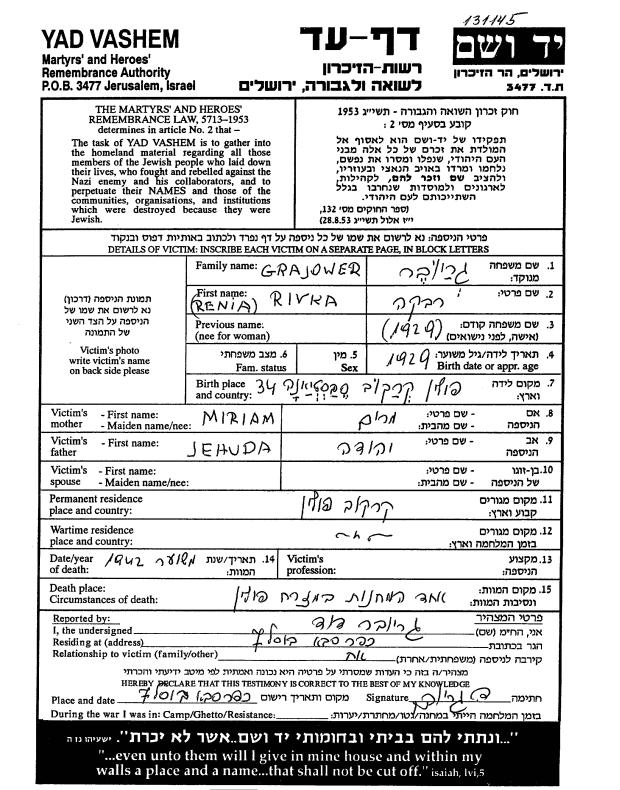 131145
YAD VASHEM
Martyrs' and Heroes'
Remembrance Authority
P.O.B. 3477 Jerusalem, Israel
דף-עד
רשות-הזיכרון
לשואה ולגבורה, ירושלים
יד ושם
ירושלים, הר הזיכרון
ת.ד. 3477
THE MARTYRS' AND HEROES'
REMEMBRANCE LAW, 5713–1953
determines in article No. 2 that –
The task of YAD VASHEM is to gather into
the homeland material regarding all those
members of the Jewish people who laid down
their lives, who fought and rebelled against the
Nazi enemy and his collaborators, and to
perpetuate their NAMES and those of the
communities, organisations, and institutions
which were destroyed because they were
Jewish.
חוק זכרון השואה והגבורה - תשי״ג 1953
קובע בסעיף מס׳ 2 :
תפקידו של יד-ושם הוא לאסוף אל
המולדת את זכרם של כל אלה מבני
העם היהודי, שנפלו ומסרו את נפשם,
נלחמו ומרדו באויב הנאצי ובעוזריו,
ולהציב שם וזכר להם, לקהילות,
לארגונים ולמוסדות שנחרבו בגלל
השתייכותם לעם היהודי.
(ספר החוקים מס׳ 132,
י״ז אלול תשי״ג 28.8.53)
פרטי הניספה: נא לרשום את שמו של כל ניספה על דף נפרד ולכתוב באותיות דפוס ובנקוד
DETAILS OF VICTIM: INSCRIBE EACH VICTIM ON A SEPARATE PAGE, IN BLOCK LETTERS
תמונת הניספה (דרכון)
נא לרשום את שמו של
הניספה על הצד השני
של התמונה
Victim's photo
write victim's name
on back side please
Family name: GRAJOWER גריובר 1. שם משפחה
מנוקד:
First name: (RENIA) RIVKA רבקה 2. שם פרטי:
Previous name:
(nee for woman) (1929) 3. שם משפחה קודם:
(אישה, לפני נישואים)
6. מצב משפחתי
Fam. status
5. מין
Sex
1929 4. תאריך לידה/גיל משוער:
Birth date or appr. age
Birth place
and country: פולין קרקוב סבסטיאנה 34 7. מקום לידה
וארץ:
Victim's
mother
- First name: MIRIAM
- Maiden name/nee:
מרים - שם פרטי:
- שם מהבית:
8. אם
הניספה
Victim's
father
- First name: JEHUDA
- Maiden name/nee:
יהודה - שם פרטי:
- שם מהבית:
9. אב
הניספה
Victim's
spouse
- First name:
- Maiden name/nee:
- שם פרטי:
- שם מהבית:
10. בן-זוגו
של הניספה
Permanent residence
place and country: קרקוב פולין 11. מקום מגורים
קבוע וארץ:
Wartime residence
place and country: 12. מקום מגורים
בזמן המלחמה וארץ:
Date/year
of death: משוער 1942 14. תאריך/שנת
המוות:
Victim's
profession:
13. מקצוע
הניספה:
Death place:
Circumstances of death: אחד המחנות במזרח פולין 15. מקום המוות:
ונסיבות המוות:
Reported by: פרטי המצהיר
I, the undersigned גריובר דוד אני, החיימ (שם)
Residing at (address) כפר סבא הגר בכתובת
Relationship to victim (family/other) אח קירבה לניספה (משפחתית/אחרת)
מצהיר/ה בזה כי העדות שמסרתי על פרטיה היא נכונה ואמתית לפי מיטב ידיעתי והכרתי
HEREBY DECLARE THAT THIS TESTIMONY IS CORRECT TO THE BEST OF MY KNOWLEDGE
Place and date כפר סבא מקום ותאריך רישום Signature ד. גריובר חתימה
During the war I was in: Camp/Ghetto/Resistance: בזמן המלחמה הייתי במחנה/גטו/מחתרת/יערות:
"...ונתתי להם בביתי ובחומותי יד ושם..אשר לא יכרת". ישעיהו נו ה
"...even unto them will I give in mine house and within my
walls a place and a name...that shall not be cut off." isaiah, lvi,5